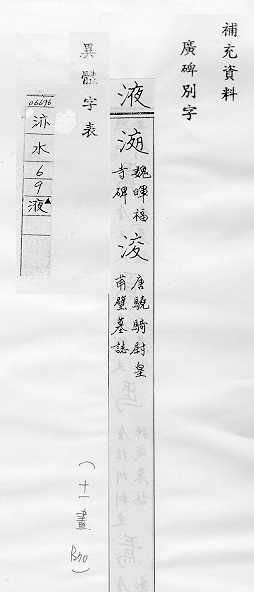 補充資料
廣碑別字
液
魏暉福
寺碑
唐驍騎尉皇
甫璧墓誌
異體字表
(十一畫 B70)
06696
水
6
9
液▲